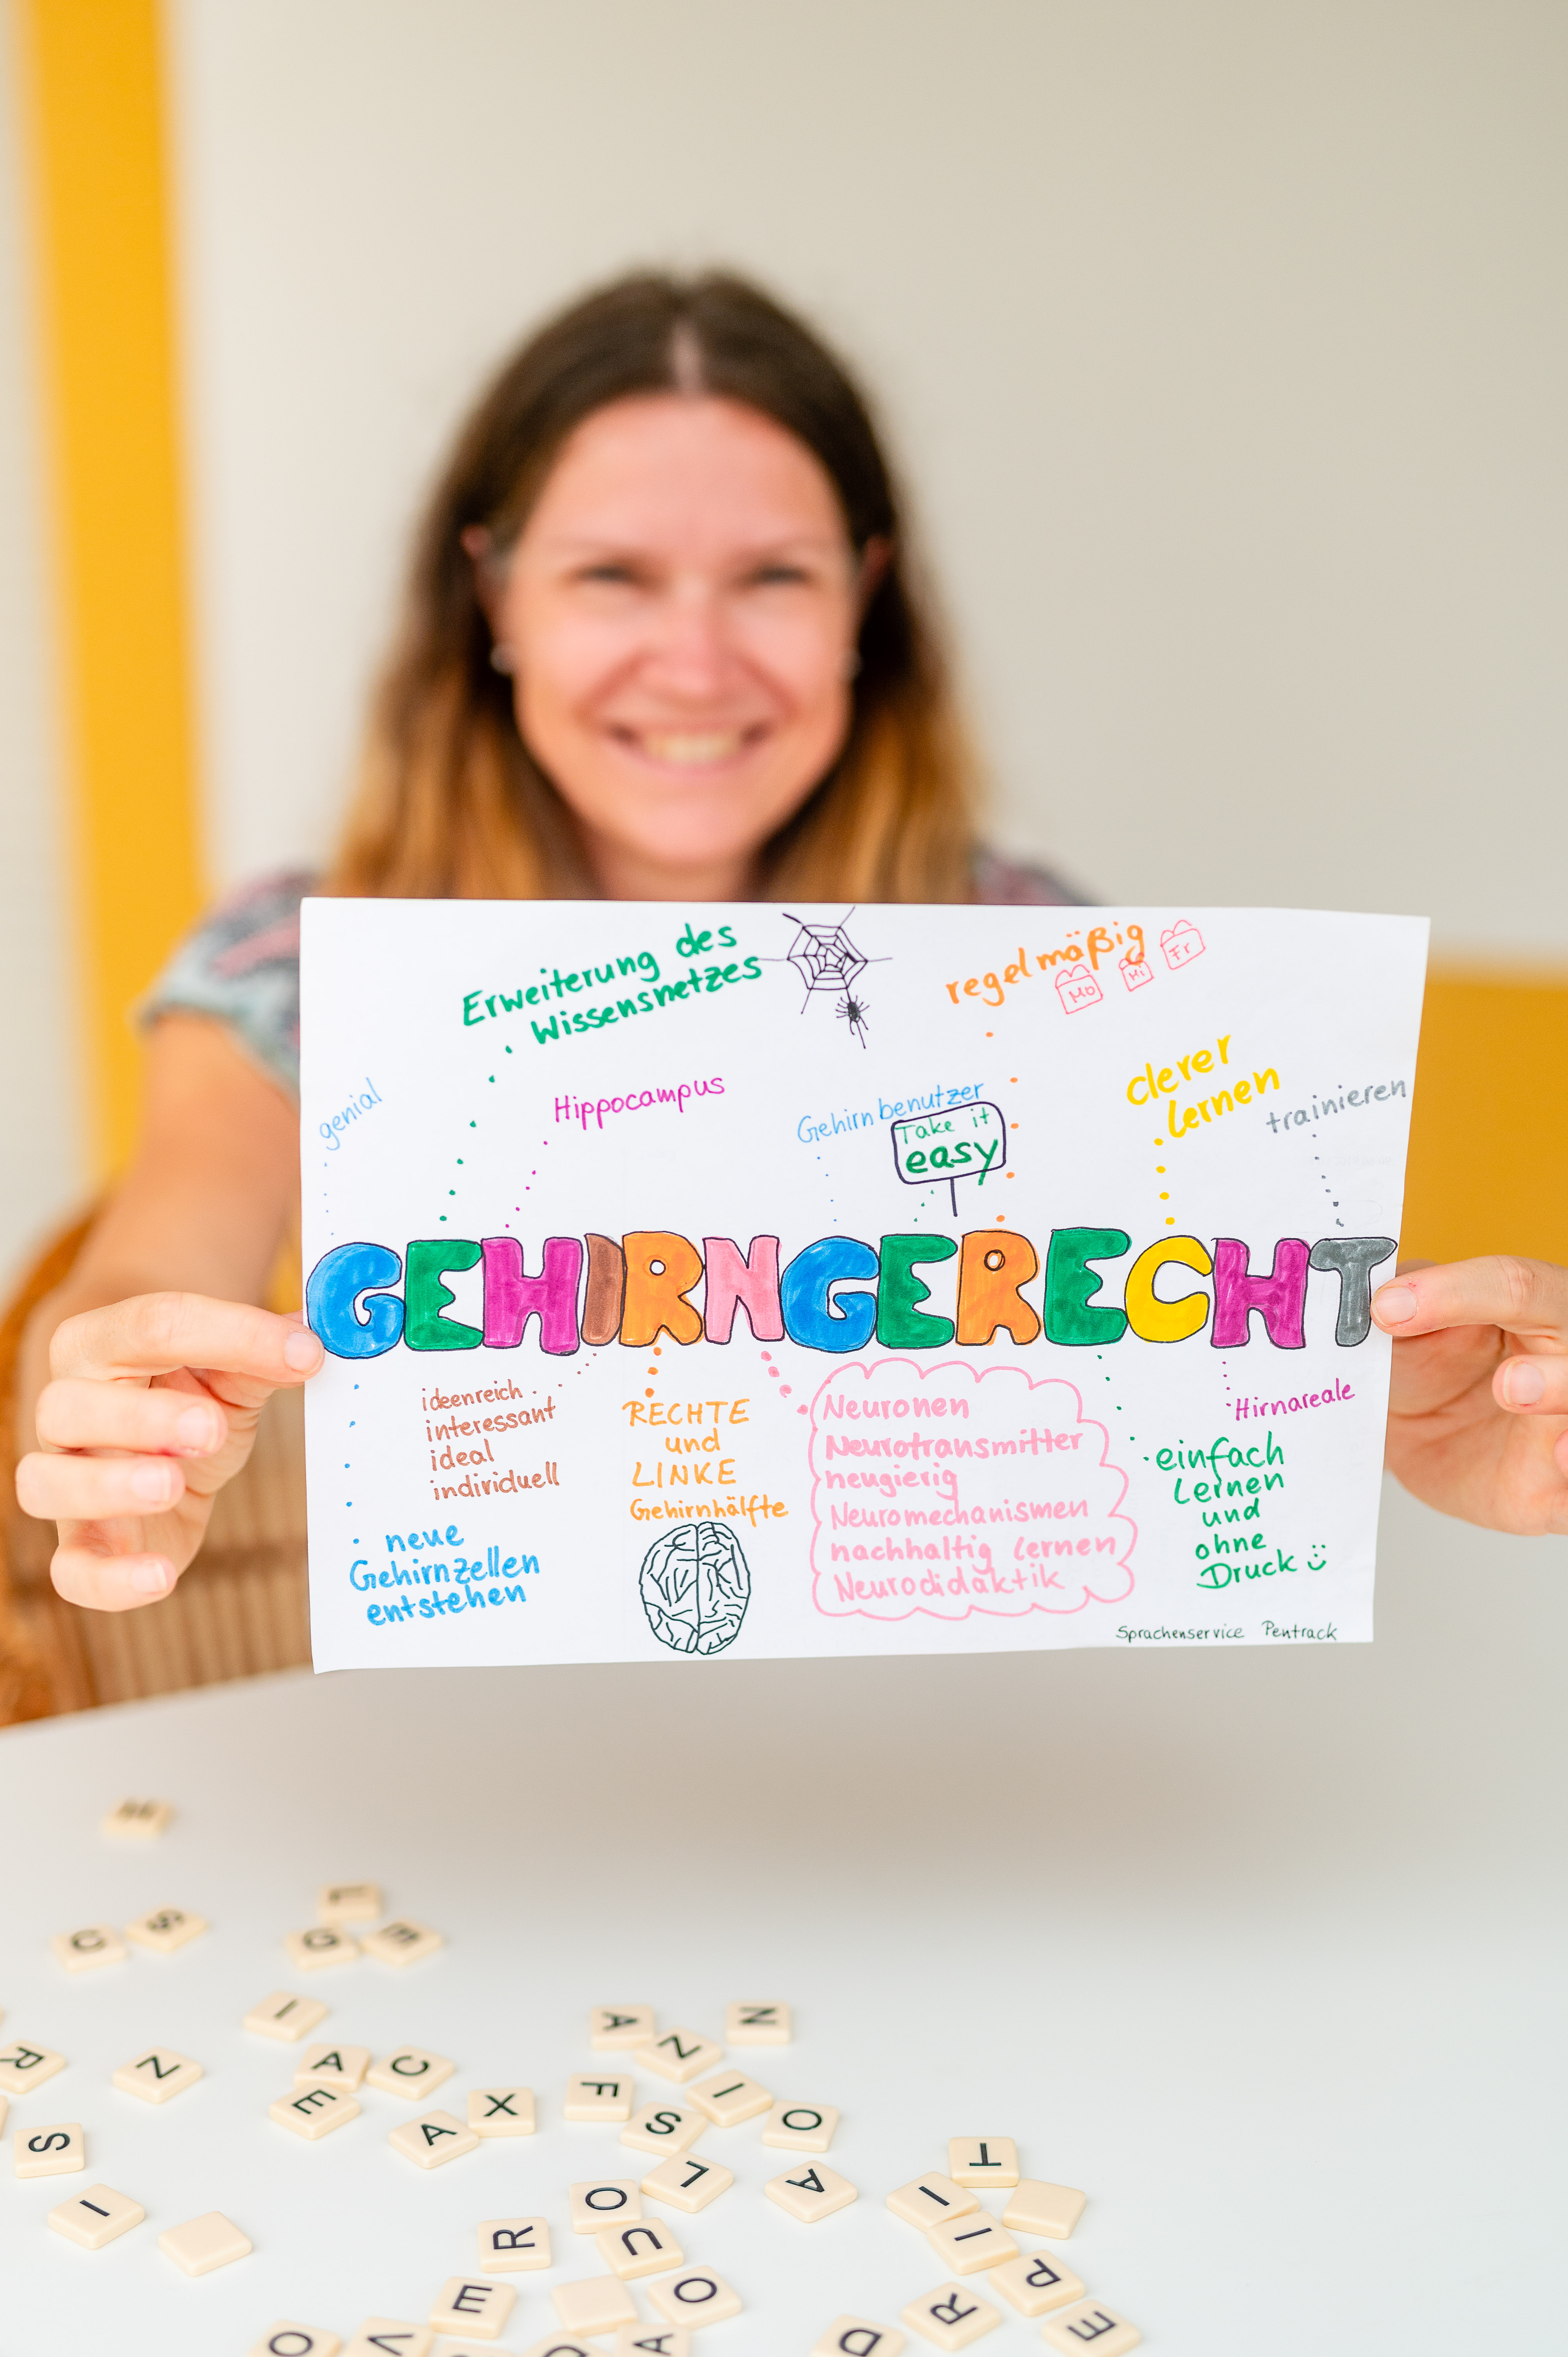 Erweiterung des
Wissensnetzes
regelmäßig
Mo Mi Fr
genial
Hippocampus
Gehirnbenutzer
Take it
easy
clever
lernen
trainieren
GEHIRNGERECHT
ideenreich
interessant
ideal
individuell
neue
Gehirnzellen
entstehen
RECHTE
und
LINKE
Gehirnhälfte
Neuronen
Neurotransmitter
neugierig
Neuromechanismen
nachhaltig lernen
Neurodidaktik
Hirnareale
einfach
Lernen
und
ohne
Druck
Sprachenservice Pentrack
C S
G E
I
R N A C A N N
S E A X F I O
S L
I O A I T
R U I
E O R P
O V E A D E